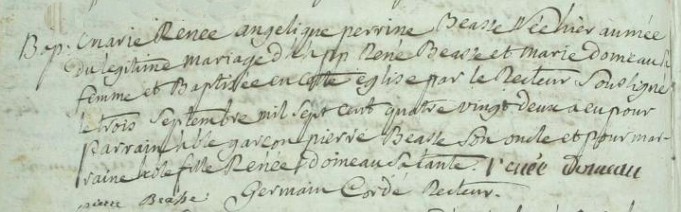 Bap: Marie Renée angelique perrine Beasse Née hier au mée
du legitime mariage d' René Beasse et Marie domeau sa
femme et Baptisée en cette église par le Recteur Soussigné
le trois Septembre mil Sept cent quatre vingt deux a eu pour
parrain garçon pierre Beasse Son oncle et pour mar-
raine fille Renée domeau Sa tante. renée domeau
pierre Beasse: Germain Cordé Recteur.